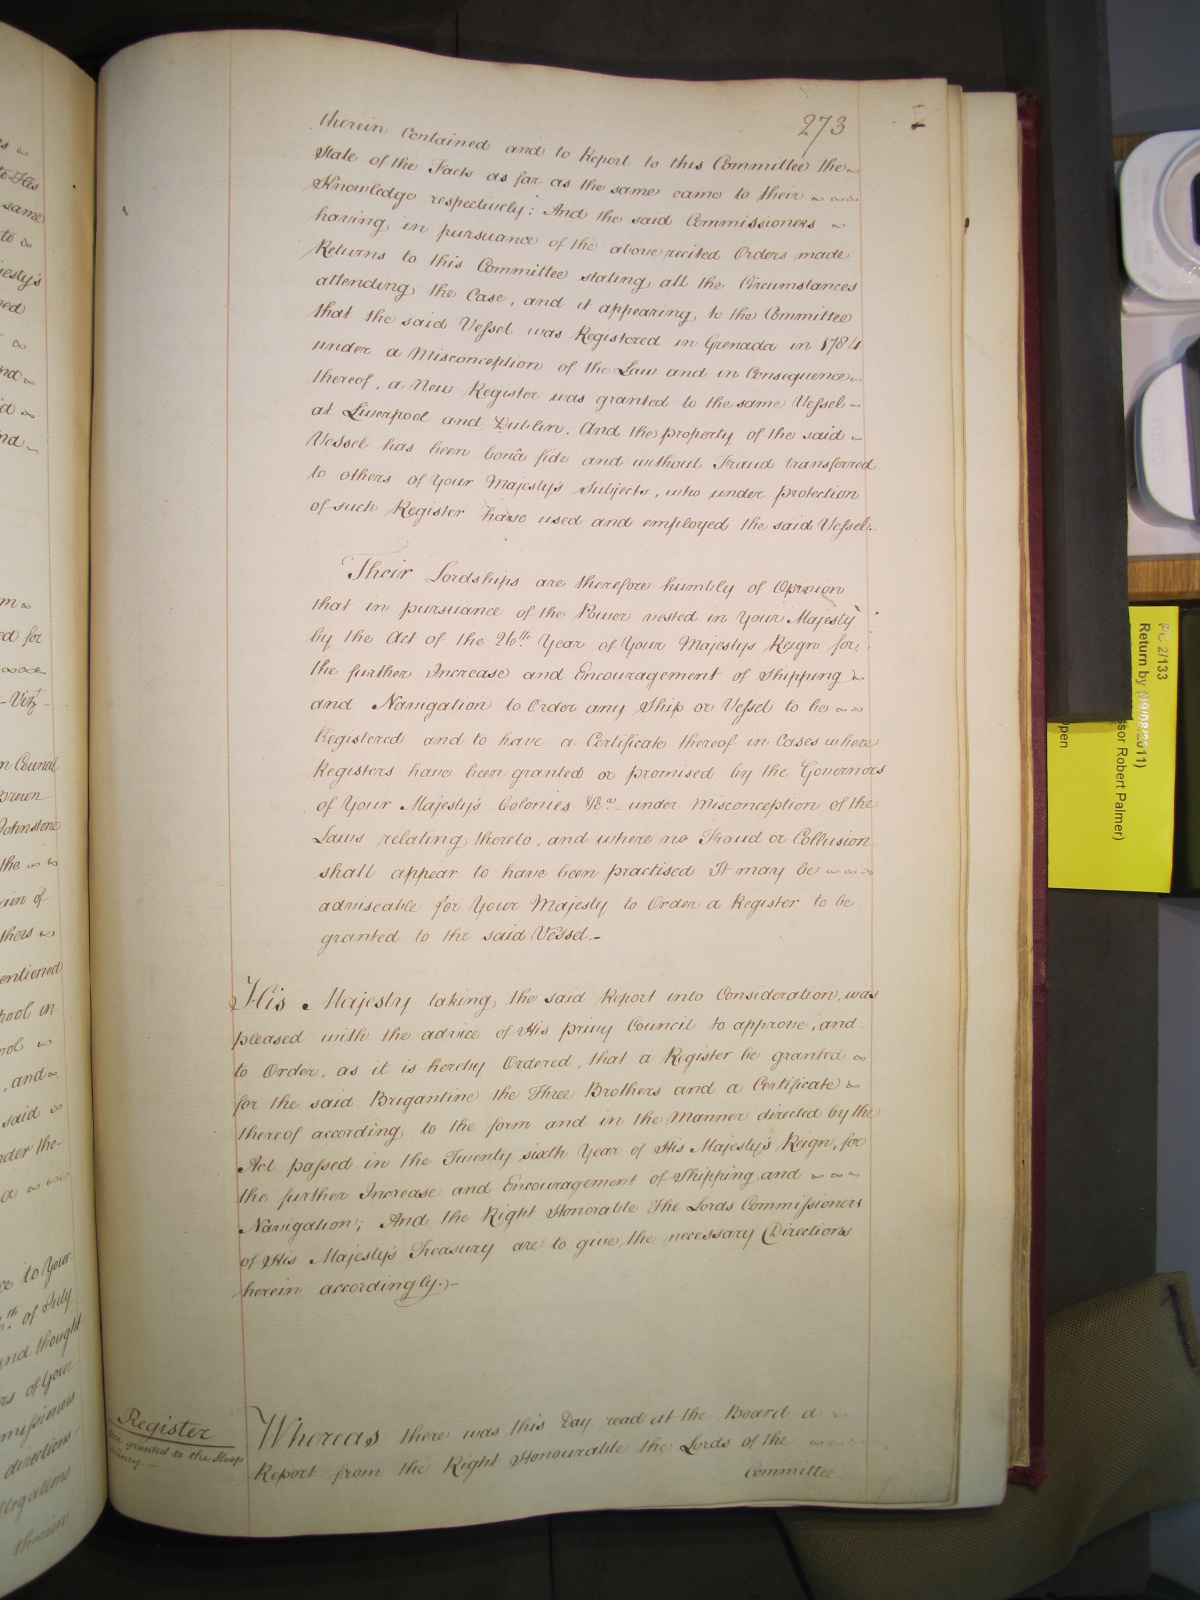 273
therein contained and to Report to this Committee the
State of the Facts as far as the same came to their
Knowledge respectively: And the said Commissioners
having in pursuance of the above recited Orders made
Returns to this Committee stating all the Circumstances
attending the Case, and it appearing to the Committee
that the said Vessel was Registered in Grenada in 1784
under a Misconception of the Law and in Consequence
thereof, a New Register was granted to the same Vessel
at Liverpool and Dublin. And the property of the said
Vessel has been bonâ fide and without Fraud transferred
to others of Your Majesty's Subjects, who under protection
of such Register have used and employed the said Vessel.
Their Lordships are therefore humbly of Opinion
that in pursuance of the Power vested in Your Majesty
by the Act of the 26th Year of Your Majestys Reign for
the further Increase and Encouragement of Shipping
and Navigation to Order any Ship or Vessel to be
Registered and to have a Certificate thereof in Cases where
Registers have been granted or promised by the Governors
of Your Majesty's Colonies &ca under misconception of the
Laws relating thereto, and where no Fraud or Collusion
shall appear to have been practised It may be
adviseable for Your Majesty to Order a Register to be
granted to the said Vessel.
His Majesty taking the said Report into Consideration, was
pleased with the advice of His privy Council to approve, and
to Order, as it is hereby Ordered, that a Register be granted
for the said Brigantine the Three Brothers and a Certificate
thereof according to the form and in the Manner directed by the
Act passed in the Twenty sixth Year of His Majesty's Reign, for
the further Increase and Encouragement of Shipping and
Navigation; And the Right Honorable The Lords Commissioners
of His Majesty's Treasury are to give the necessary Directions
herein accordingly.
Register
granted to the Sloop
Whereas there was this Day read at the Board a
Report from the Right Honourable the Lords of the
Committee
to His
same
to
jesty's
ed for
Vizt
Council
Brown
Johnstone
the
ain of
thers
entioned
pool in
and
said
under the
to Your
th of July
and thought
of Your
directions
therein
PC 2/133
Return by (19/08/2011)
ssor Robert Palmer)